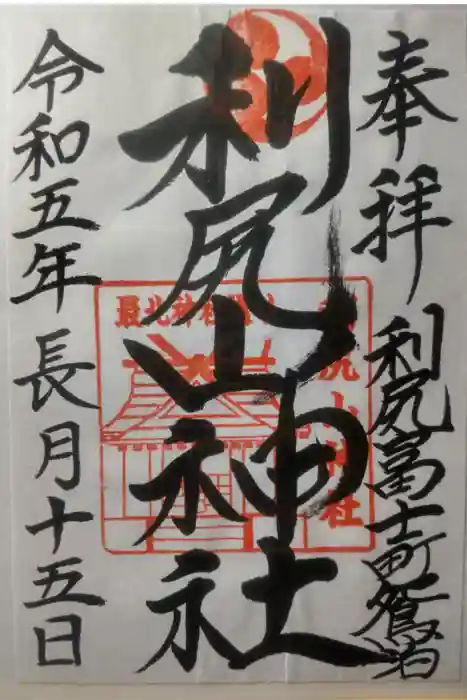 奉拝
利尻富士町鴛泊
利尻山神社
利尻山神社
令和五年長月十五日